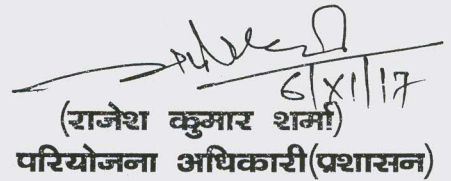 6/XI/17
(राजेश कुमार शर्मा)
परियोजना अधिकारी(प्रशासन)